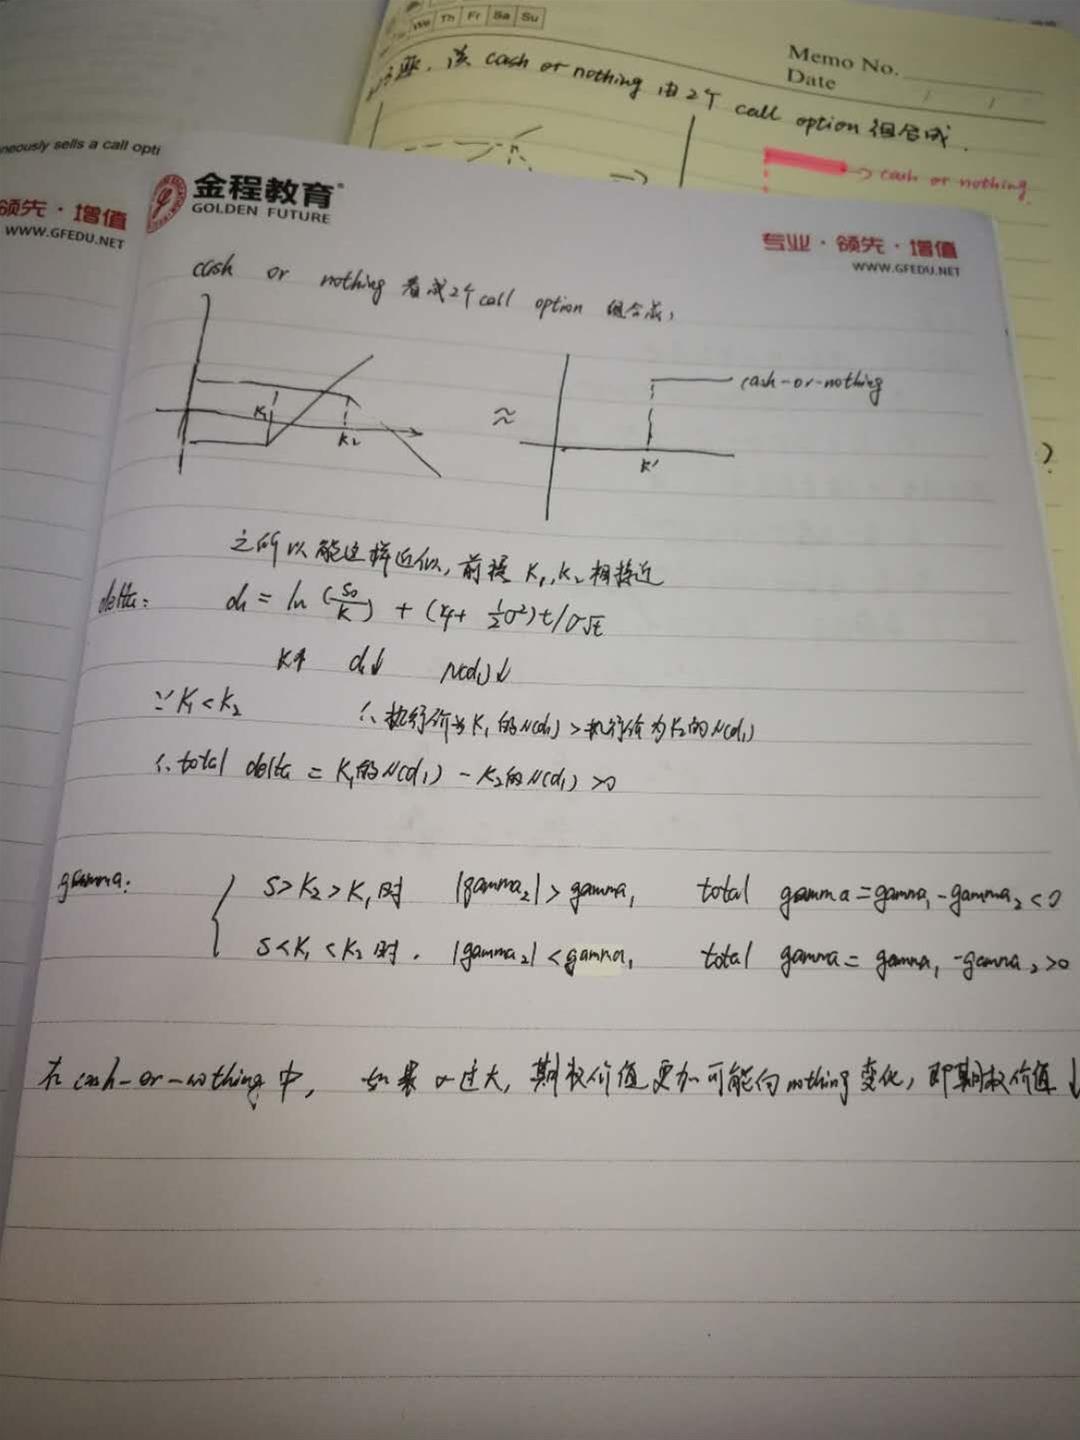 We Th Fr Sa Su
Memo No.
Date
该 cash or nothing 由2个 call option 组合成.
→ cash or nothing.
neously sells a call opti
领先·增值
WWW.GFEDU.NET
金程教育
GOLDEN FUTURE
专业·领先·增值
WWW.GFEDU.NET
cash or nothing 看成2个call option 组合成,
K₁
K₂
≈
cash-or-nothing
K'
?
之所以能这样近似, 前提 K₁, K₂ 相接近
delta: d₁ = ln (S₀/K) + (r+ ½σ²)t/σ√t
K↑ d₁↓ N(d₁)↓
∵ K₁<K₂ ∴ 执行价为K₁的N(d₁) > 执行价为K₂的N(d₁)
∴ total delta = K₁的N(d₁) - K₂的N(d₁) >0
gamma: { S>K₂>K₁时 |gamma₂|>gamma₁ total gamma=gamma₁-gamma₂<0
S<K₁<K₂时. |gamma₂|<gamma₁ total gamma= gamma₁-gamma₂>0
在 cash-or-nothing 中, 如果σ过大, 期权价值更加可能向nothing变化, 即期权价值↓